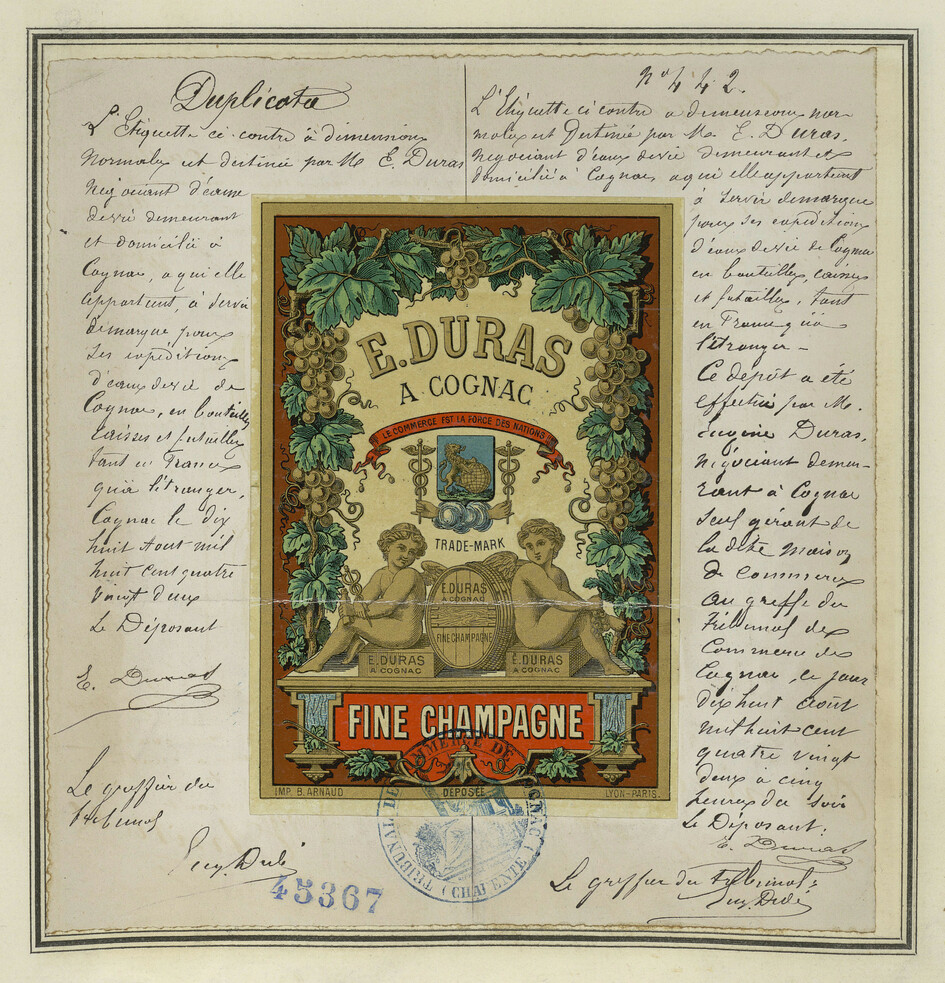 Duplicata
L'Etiquette ci-contre à dimensions
Normales est destinée par Mr E. Duras
négociant d'eaux
de vie demeurant
et domicilié à
Cognac, à qui elle
appartient, à servir
de marque pour
ses expéditions
d'eaux de vie de
Cognac, en bouteilles
caisses et futailles
tant en France
qu'à l'étranger,
Cognac le dix
huit Aout mil
huit cent quatre
vingt deux
Le Déposant
E. Duras
Le greffier du
tribunal
45367
no 442.
L'Etiquette ci contre a dimensions nor-
males est Destinée par Mr E. Duras,
négociant d'eaux de vie demeurant et
domicilié à Cognac a qui elle appartient
à servir de marque
pour ses expéditions
d'eaux de vie de Cognac
en bouteilles, caisses
et futailles, tant
en France qu'à
l'étranger —
Ce dépôt a été
effectué par Mr.
Eugène Duras,
négociant demeu-
rant à Cognac
seul gérant de
la dite maison
de commerce
au greffe du
tribunal de
Commerce de
Cognac, ce jour
dix huit août
mil huit cent
quatre vingt
deux à cinq
heures du soir
Le Déposant:
E. Duras
Le greffier du tribunal:
E. DURAS
A COGNAC
LE COMMERCE EST LA FORCE DES NATIONS
TRADE-MARK
E. DURAS
A COGNAC
FINE CHAMPAGNE
E. DURAS
A COGNAC
E. DURAS
A COGNAC
FINE CHAMPAGNE
IMP. B. ARNAUD
DÉPOSÉE
LYON-PARIS.
TRIBUNAL DE COMMERCE DE COGNAC
(CHARENTE)